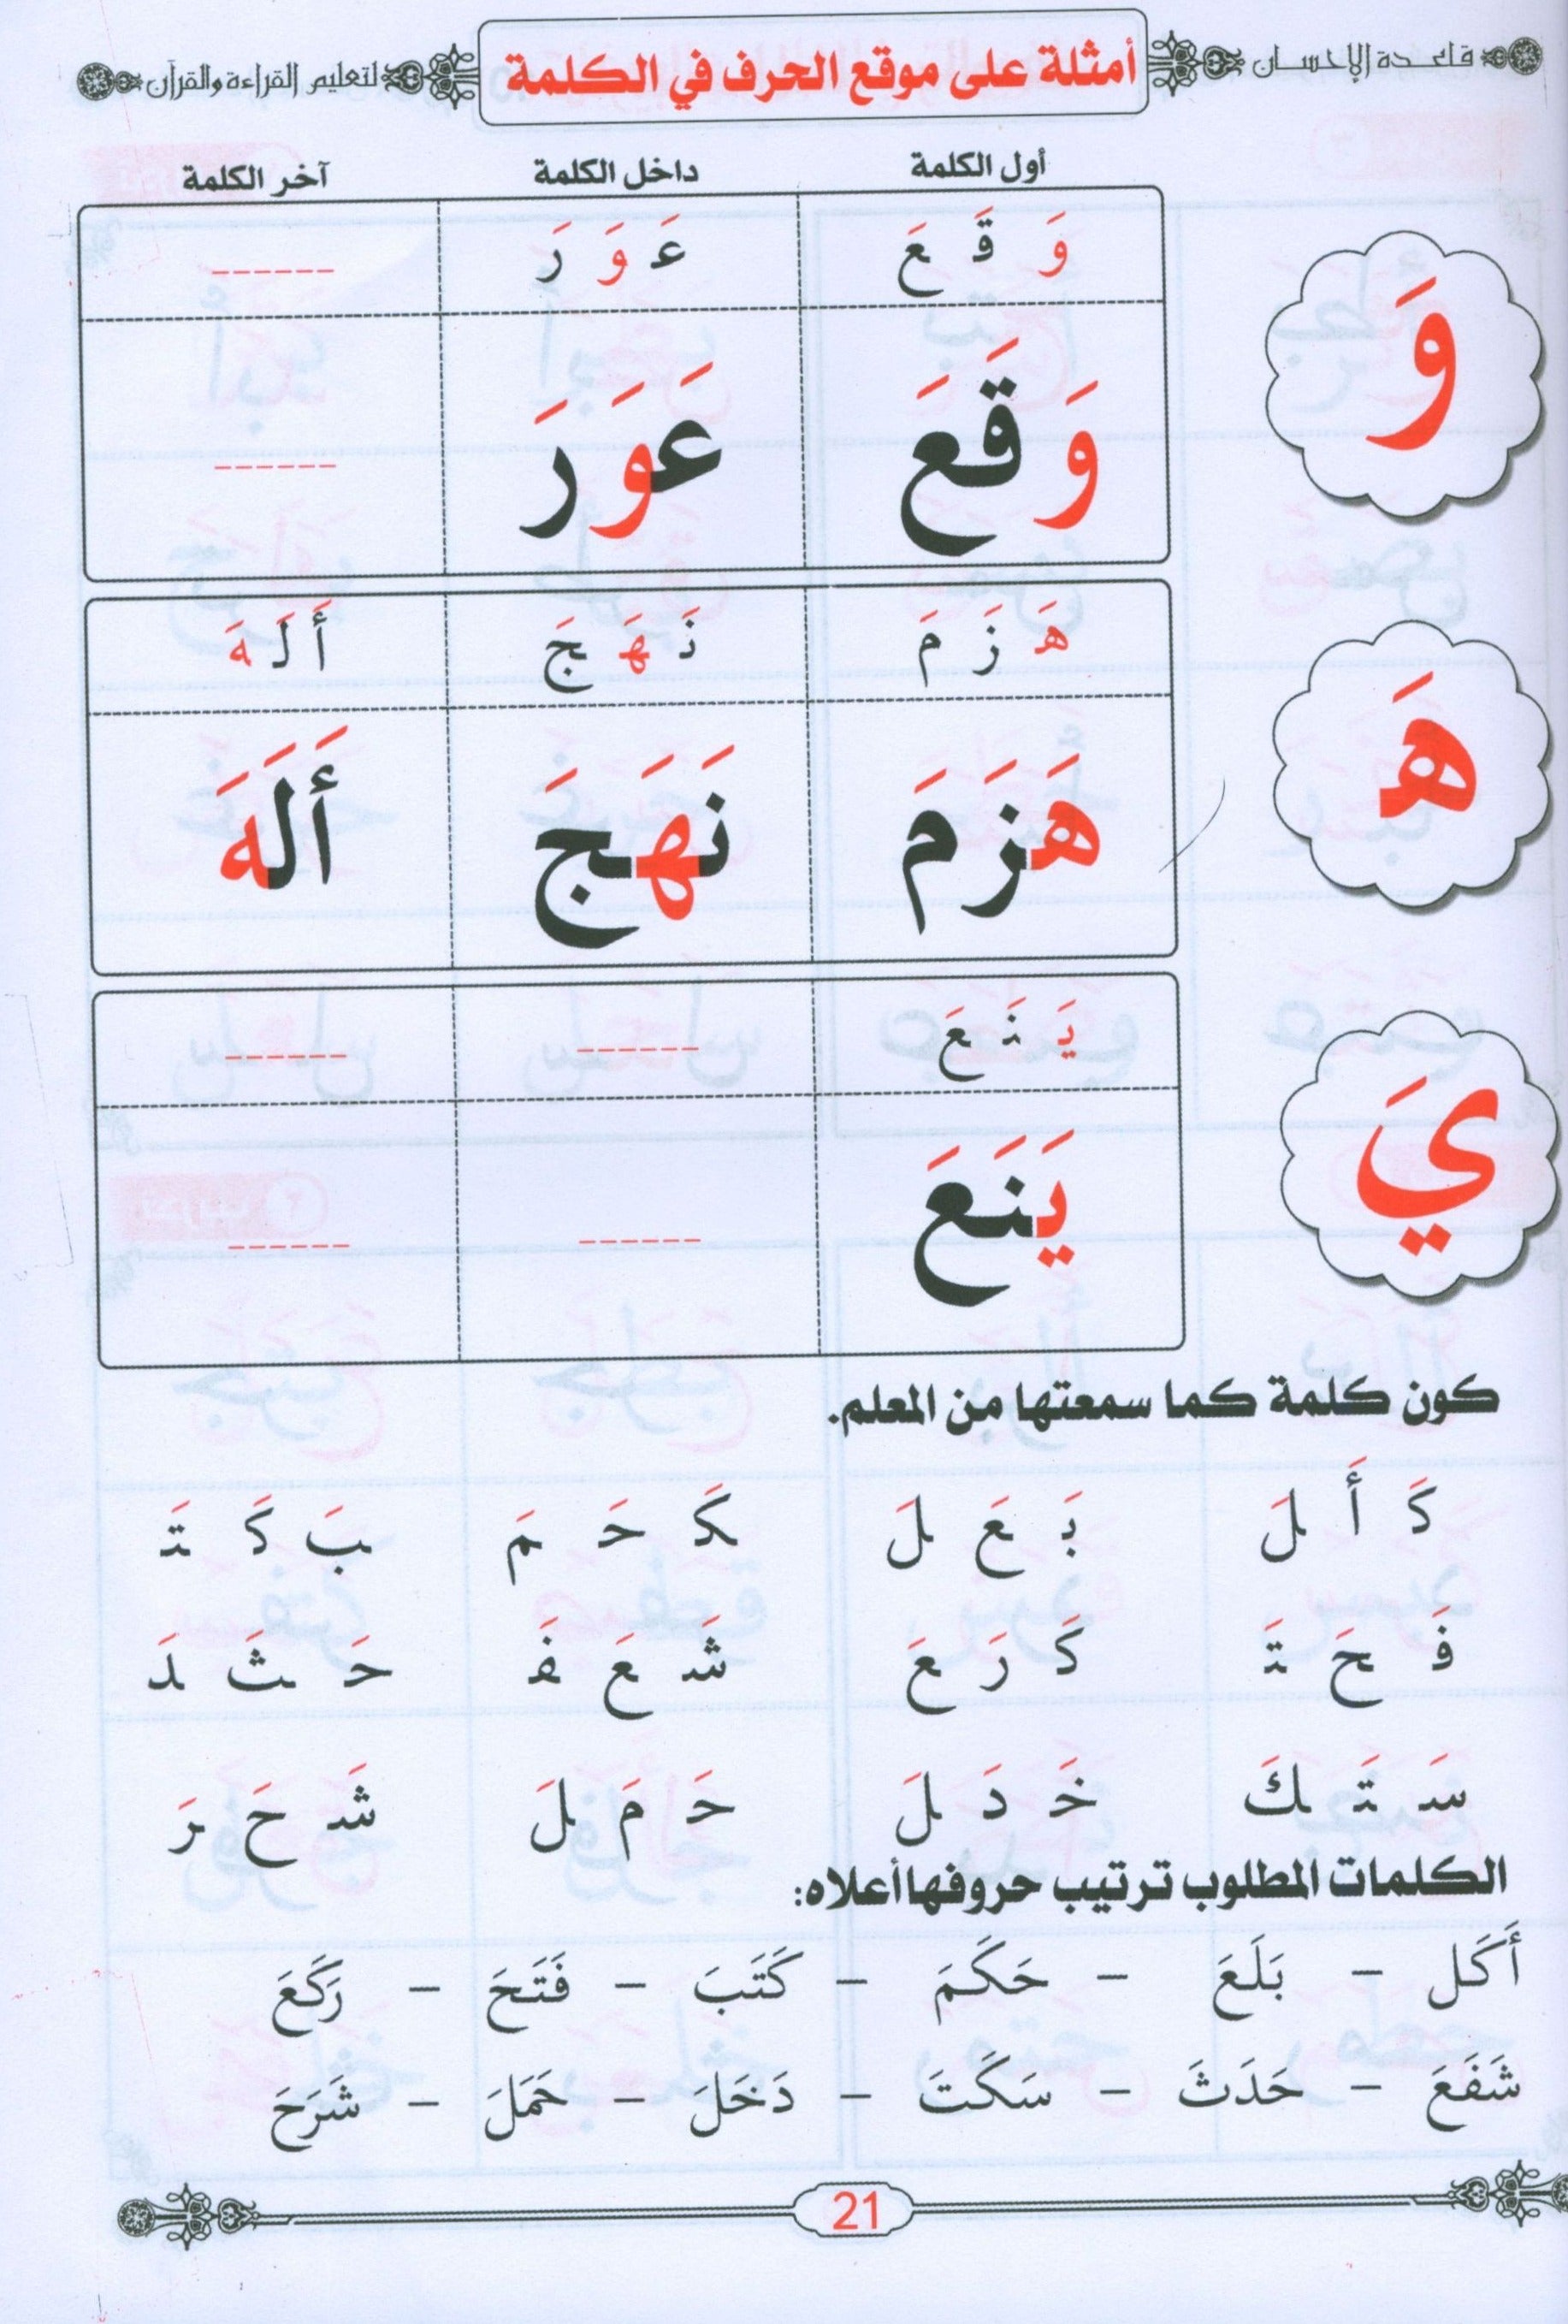 قاعدة الإحسان أمثلة على موقع الحرف في الكلمة لتعليم القراءة والقرآن
أول الكلمة داخل الكلمة آخر الكلمة
وَ
وَ قَ عَ عَ وَ رَ ------
وَقَعَ عَوَرَ ------
هَ
هَ زَ مَ نَ هَ جَ أَ لَ هَ
هَزَمَ نَهَجَ أَلَهَ
يَ
يَ نَ عَ ------ ------
يَنَعَ ------ ------
كون كلمة كما سمعتها من المعلم.
كَ أَ لَ بَ عَ لَ كَ حَ مَ بَ كَ تَ
فَ حَ تَ كَ رَ عَ شَ عَ فَ حَ ثَ دَ
سَ تَ كَ خَ دَ لَ حَ مَ لَ شَ حَ رَ
الكلمات المطلوب ترتيب حروفها أعلاه:
أَكَل – بَلَعَ – حَكَمَ – كَتَبَ – فَتَحَ – رَكَعَ
شَفَعَ – حَدَثَ – سَكَتَ – دَخَلَ – حَمَلَ – شَرَحَ
21